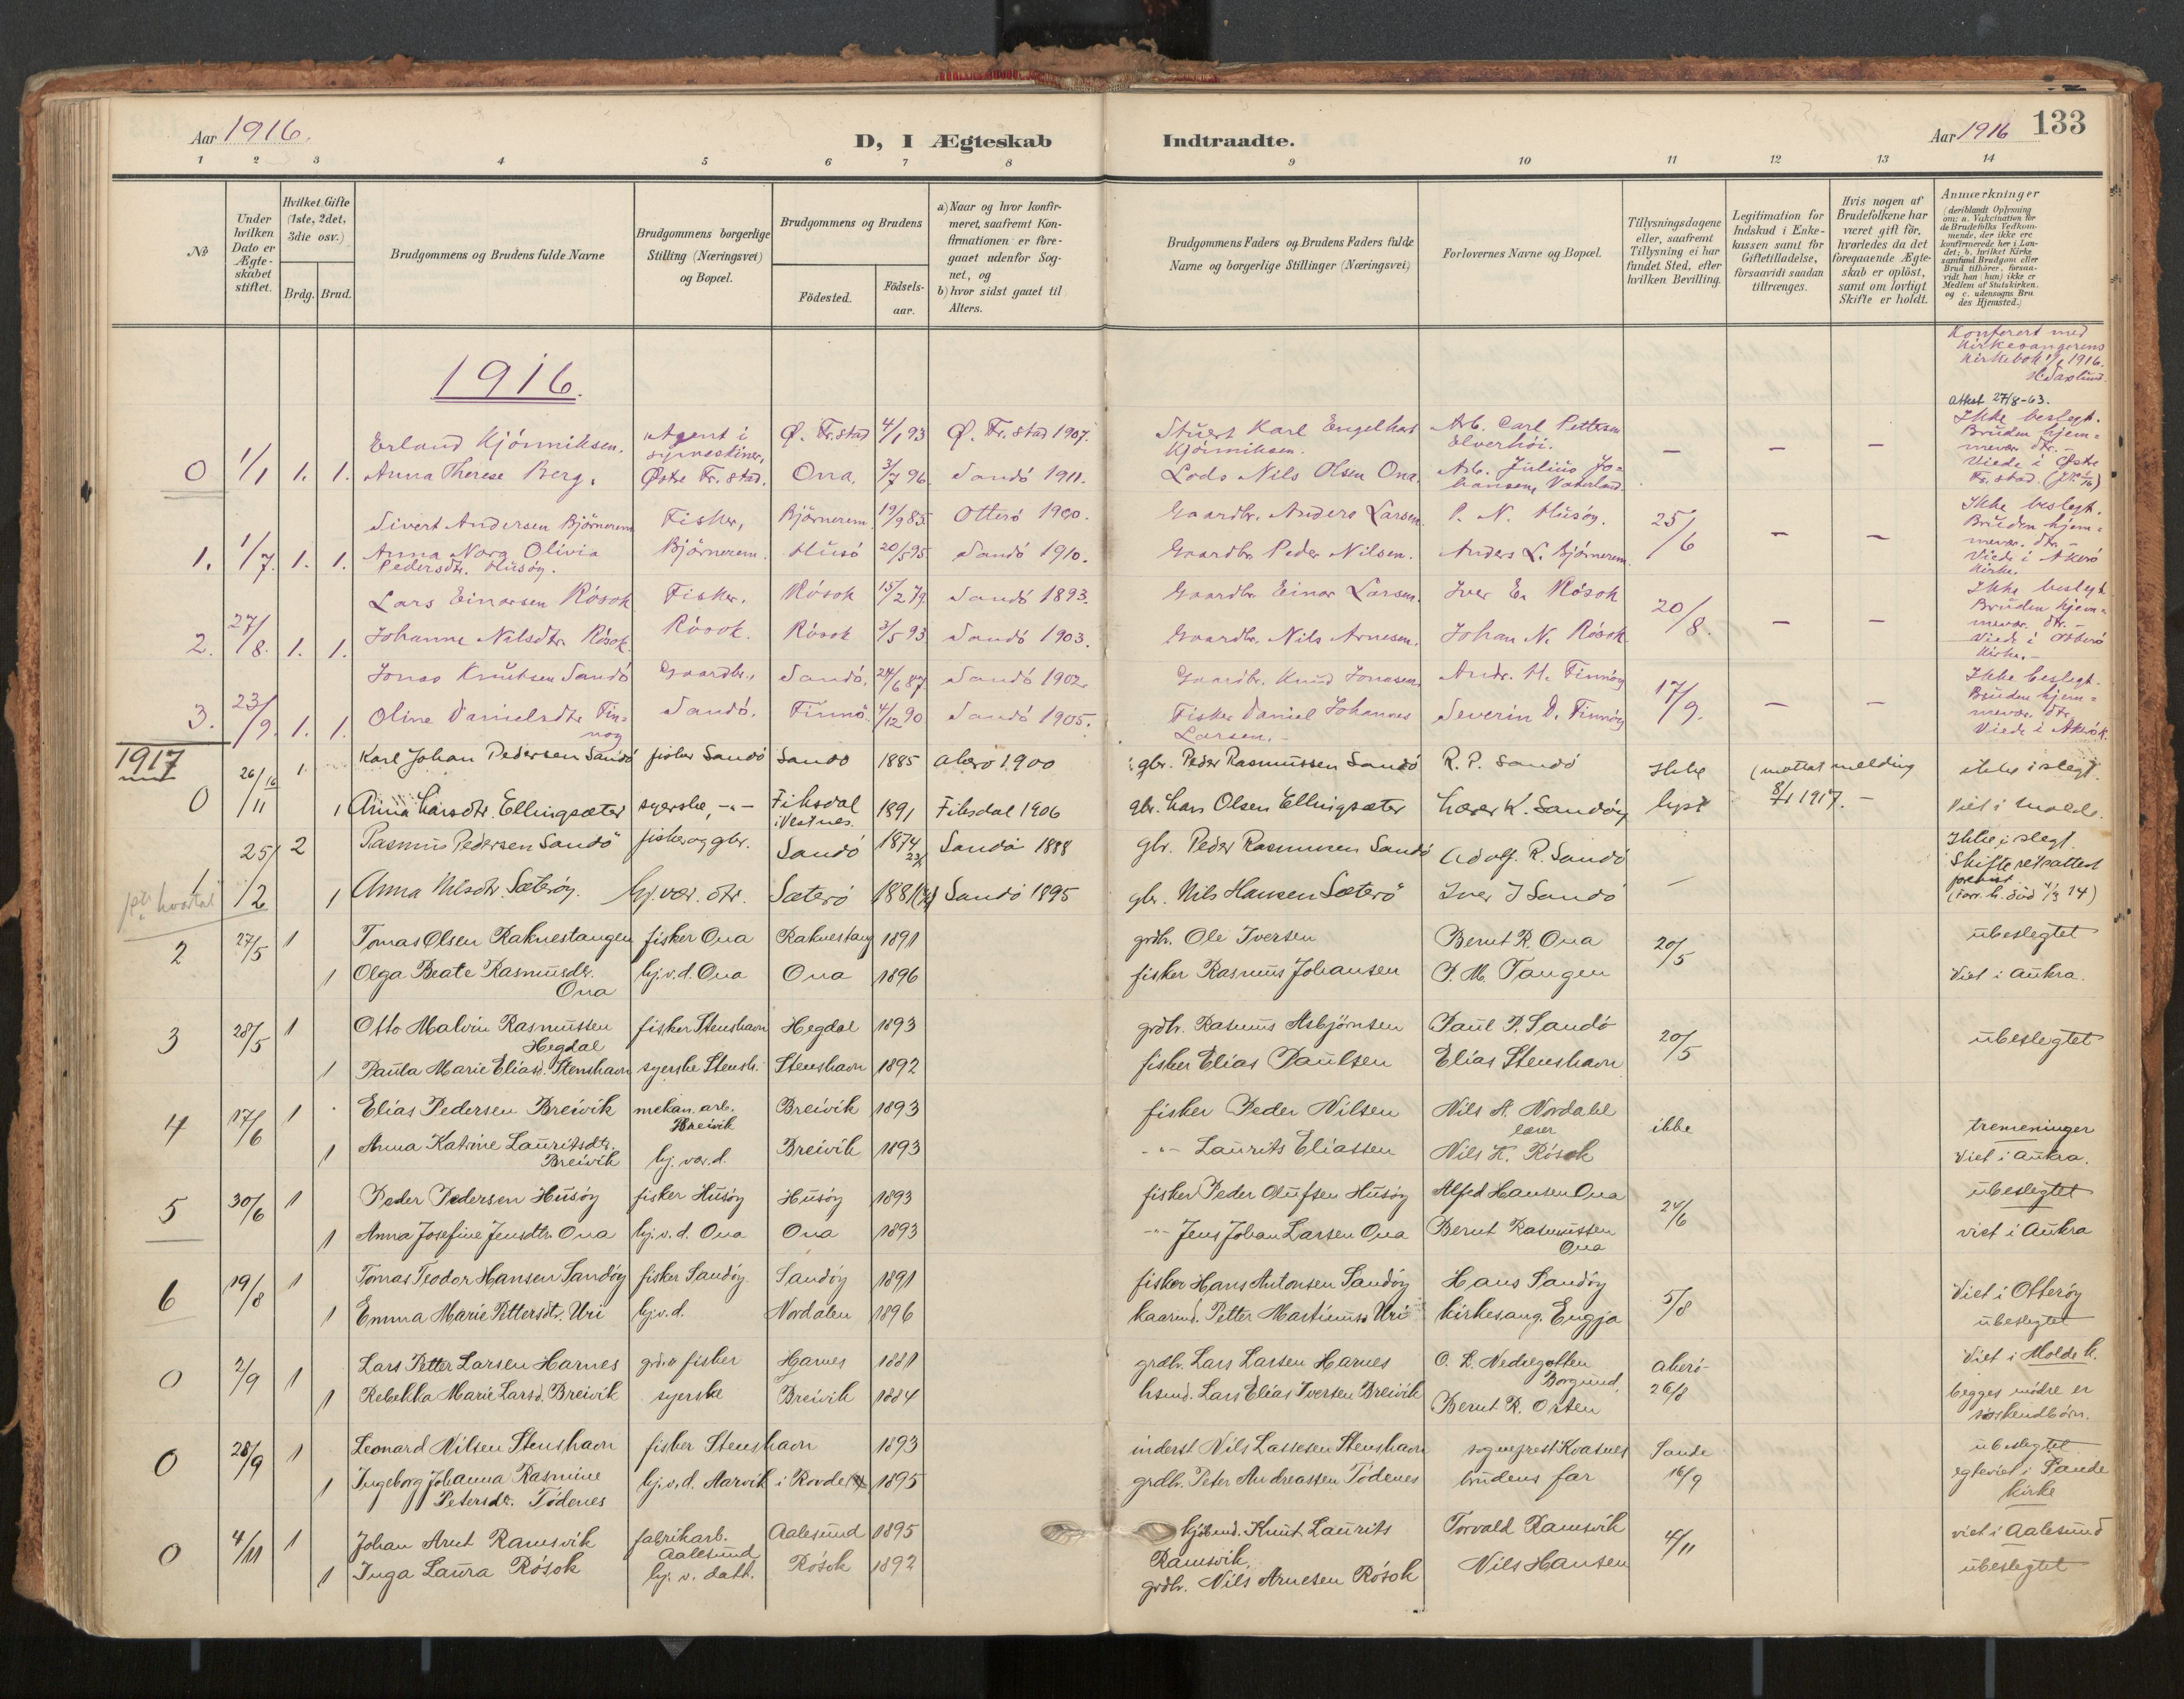 Aar 1916.
D, I Ægteskab Indtraadte.
Aar 1916 133
1 2 3 4 5 6 7 8 9 10 11 12 13 14
No
Under hvilken Dato er Ægteskabet stiftet.
Hvilket Gifte (1ste, 2det, 3die osv.)
Brdg. Brud.
Brudgommens og Brudens fulde Navne
Brudgommens borgerlige Stilling (Næringsvei) og Bopæl.
Brudgommens og Brudens
Födested. Födsels-aar.
a) Naar og hvor konfirmeret, saafremt Konfirmationen er foregaaet udenfor Sognet, og
b) hvor sidst gaaet til Alters.
Brudgommens Faders og Brudens Faders fulde Navne og borgerlige Stillinger (Næringsvei)
Forlovernes Navne og Bopæl.
Tillysningsdagene eller, saafremt Tillysning ei har fundet Sted, efter hvilken Bevilling.
Legitimation for Indskud i Enkekassen samt for Giftetilladelse, forsaavidt saadan tiltrænges.
Hvis nogen af Brudefolkene har været gift för, hvorledes da det foregaaende Ægteskab er oplöst, samt om lovligt Skifte er holdt.
Anmærkninger
(deriblandt Oplysning om: a. Vakcination for de Brudefolks Vedkommende, der ikke ere konfirmerede her i Landet; b. hvilket Kirkesamfund Brudgom eller Brud tilhörer, forsaavidt han (hun) ikke er Medlem af Statskirken. og c. udensogns Brudes Hjemsted.)
Konferert med
Kirkesangerens
Kirkebok 1/1 1916.
1916.
Attest 27/8-63.
Erland Kjönniksen. Agent i symaskiner, Ø. Fr.stad 4/1 93 Ø. Fr.stad 1907. Karl Engelhart Kjönniksen. Arb. Carl Pettersen Elverhöi. Ikke beslegt.
0 1/1 1. 1. Anna Therese Berg. Østre Fr.stad. Ona. 3/7 96. Sandö 1911. Lods Nils Olsen Ona. Arb. Julius Johansen, Vaterland. — — — Bruden hjemmevær. dtr. – Viede i Østre Fr.stad.
Sivert Andersen Björnerem Fisker, Björnerem 19/9 85. Otterö 1900. Gaardbr. Anders Larsen P. N. Husöy. 25/6 — — Ikke beslegt.
1. 1/7. 1. 1. Anna Nora Olivia Pedersdtr. Husöy. Björnerem. Husö 20/5 95. Sandö 1910. Gaardbr. Peder Nilsen. Anders L. Björnerem. Bruden hjemmevær. dtr. – Viede i Akerö Kirke.
Lars Einarsen Rösok Fisker. Rösok 15/2 79. Sandö 1893. Gaardbr. Einar Larsen. Iver E. Rösok 20/8. — — Ikke beslegt.
2. 27/8. 1. 1. Johanne Nilsdtr. Rösok. Rösok. Rösok 3/5 93 Sandö 1903. Gaardbr. Nils Arnesen. Johan N. Rösok. Bruden hjemmevær. dtr. – Viede i Otterö Kirke. –
Jonas Knutsen Sandö Gaardbr., Sandö. 24/6 87. Sandö 1902. Gaardbr. Knud Jonasen. Andr. H. Finnöy 17/9. — — Ikke beslegt.
3. 23/9. 1. 1. Oline Danielsdtr. Finnöy Sandö. Finnö. 4/12 90 Sandö 1905. Fisker Daniel Johannes Larsen. – Severin D. Finnöy Bruden hjemmevær. dtr. Viede i Akerö k.
1917
26/11 16 1 Karl Johan Pedersen Sandö fisker Sandö Sandö 1885 akerö 1900 gbr. Peder Rasmussen Sandö R. P. Sandö Ikke lyst (mottat melding 8/1 1917. – ikke i slegt.
0 1 Anna Larsdtr. Ellingsæter syerske, -"- Fiksdal i Vestnes. 1891 Fiksdal 1906 gbr. Lars Olsen Ellingsæter Lærer K. Sandöy Viet i Molde.
25/2 2 Rasmus Pedersen Sandö fisker og gbr. Sandö 1874 Sandö 1888 gbr. Peder Rasmussen Sandö Adolf. R. Sandö — Ikke i slegt. Skifteretsattest
1 1 Anna Nilsdtr. Sæteröy. hj.vær. dtr. Sæterö 1881 Sandö 1895 gbr. Nils Hansen Sæterö Iver J Sandö
2 27/5 1 Tomas Olsen Raknestangen fisker Ona Raknestang 1891 grdbr. Ole Iversen Bernt R. Ona 20/5 ubeslegtet
1 Olga Beate Rasmusdtr. Ona hj.v.d. Ona Ona 1896 fisker Rasmus Johansen P. M. Tangen Viet i Aukra.
3 28/5 1 Otto Malvin Rasmussen Hegdal fisker Stenshavn Hegdal 1893 grdbr. Rasmus Asbjörnsen Paul P. Sandö 20/5 ubeslegtet
1 Paula Marie Eliasd. Stenshavn syerske Stensh. Stenshavn 1892 fisker Elias Paulsen Elias Stenshavn
4 17/6 1 Elias Pedersen Breivik mekan. arb. Breivik Breivik 1893 fisker Peder Nilsen Nils A. Nordahl lærer ikke tremeninger
1 Anna Katrine Lauritsdtr. Breivik hj. vær. d. Breivik 1893 -"- Laurits Eliassen Nils K. Rösok Viet i Aukra.
5 30/6 1 Peder Pedersen Husöy fisker Husöy Husöy 1893 fisker Peder Olufsen Husöy Alfed Hansen Ona 24/6 ubeslegtet
1 Anna Josefine Jensdtr. Ona hj. v. d. Ona Ona 1893 -"- Jens Johan Larsen Ona Bernt Rasmussen Ona viet i Aukra
6 19/8 1 Tomas Teodor Hansen Sandöy fisker Sandöy Sandöy 1891 fisker Hans Antonsen Sandöy Hans Sandöy 5/8 Viet i Otteröy
1 Emma Marie Pettersdtr. Uri hj.v.d. Nordalen 1896 kaarmd. Petter Martinus Uri kirkesang. Engja ubeslegtet
0 2/9 1 Lars Petter Larsen Harnes fisker Harnes 1881 grdbr. Lars Larsen Harnes O. L. Nedregotten Borgund. akerö 26/8 Viet i Molde k.
1 Rebekka Marie Larsd. Breivik syerske Breivik 1884 husmd. Lars Elias Iversen Breivik Bernt R. Orten begges mödre er söskendbörn.
0 28/9 1 Leonard Nilsen Stenshavn fisker Stenshavn 1893 inderst Nils Lassesen Stenshavn sogneprest Kvasnes Sande 16/9 ubeslegtet
1 Ingeborg Johanna Rasmine Petersdtr. Tödenes hj.v.d. Aarvik i Rovde 1895 grdbr. Peter Andreassen Tödenes brudens far egteviet i Sande kirke
0 4/11 1 Johan Arnt Ramsvik fabrikarb. Aalesund Aalesund 1895 kjöbmd. Knut Laurits Ramsvik, Torvald Ramsvik 4/11 viet i Aalesund
1 Inga Laura Rösok hj. v. datt. Rösok 1892 grdbr. Nils Arnesen Rösok Nils Hansen ubeslegtet